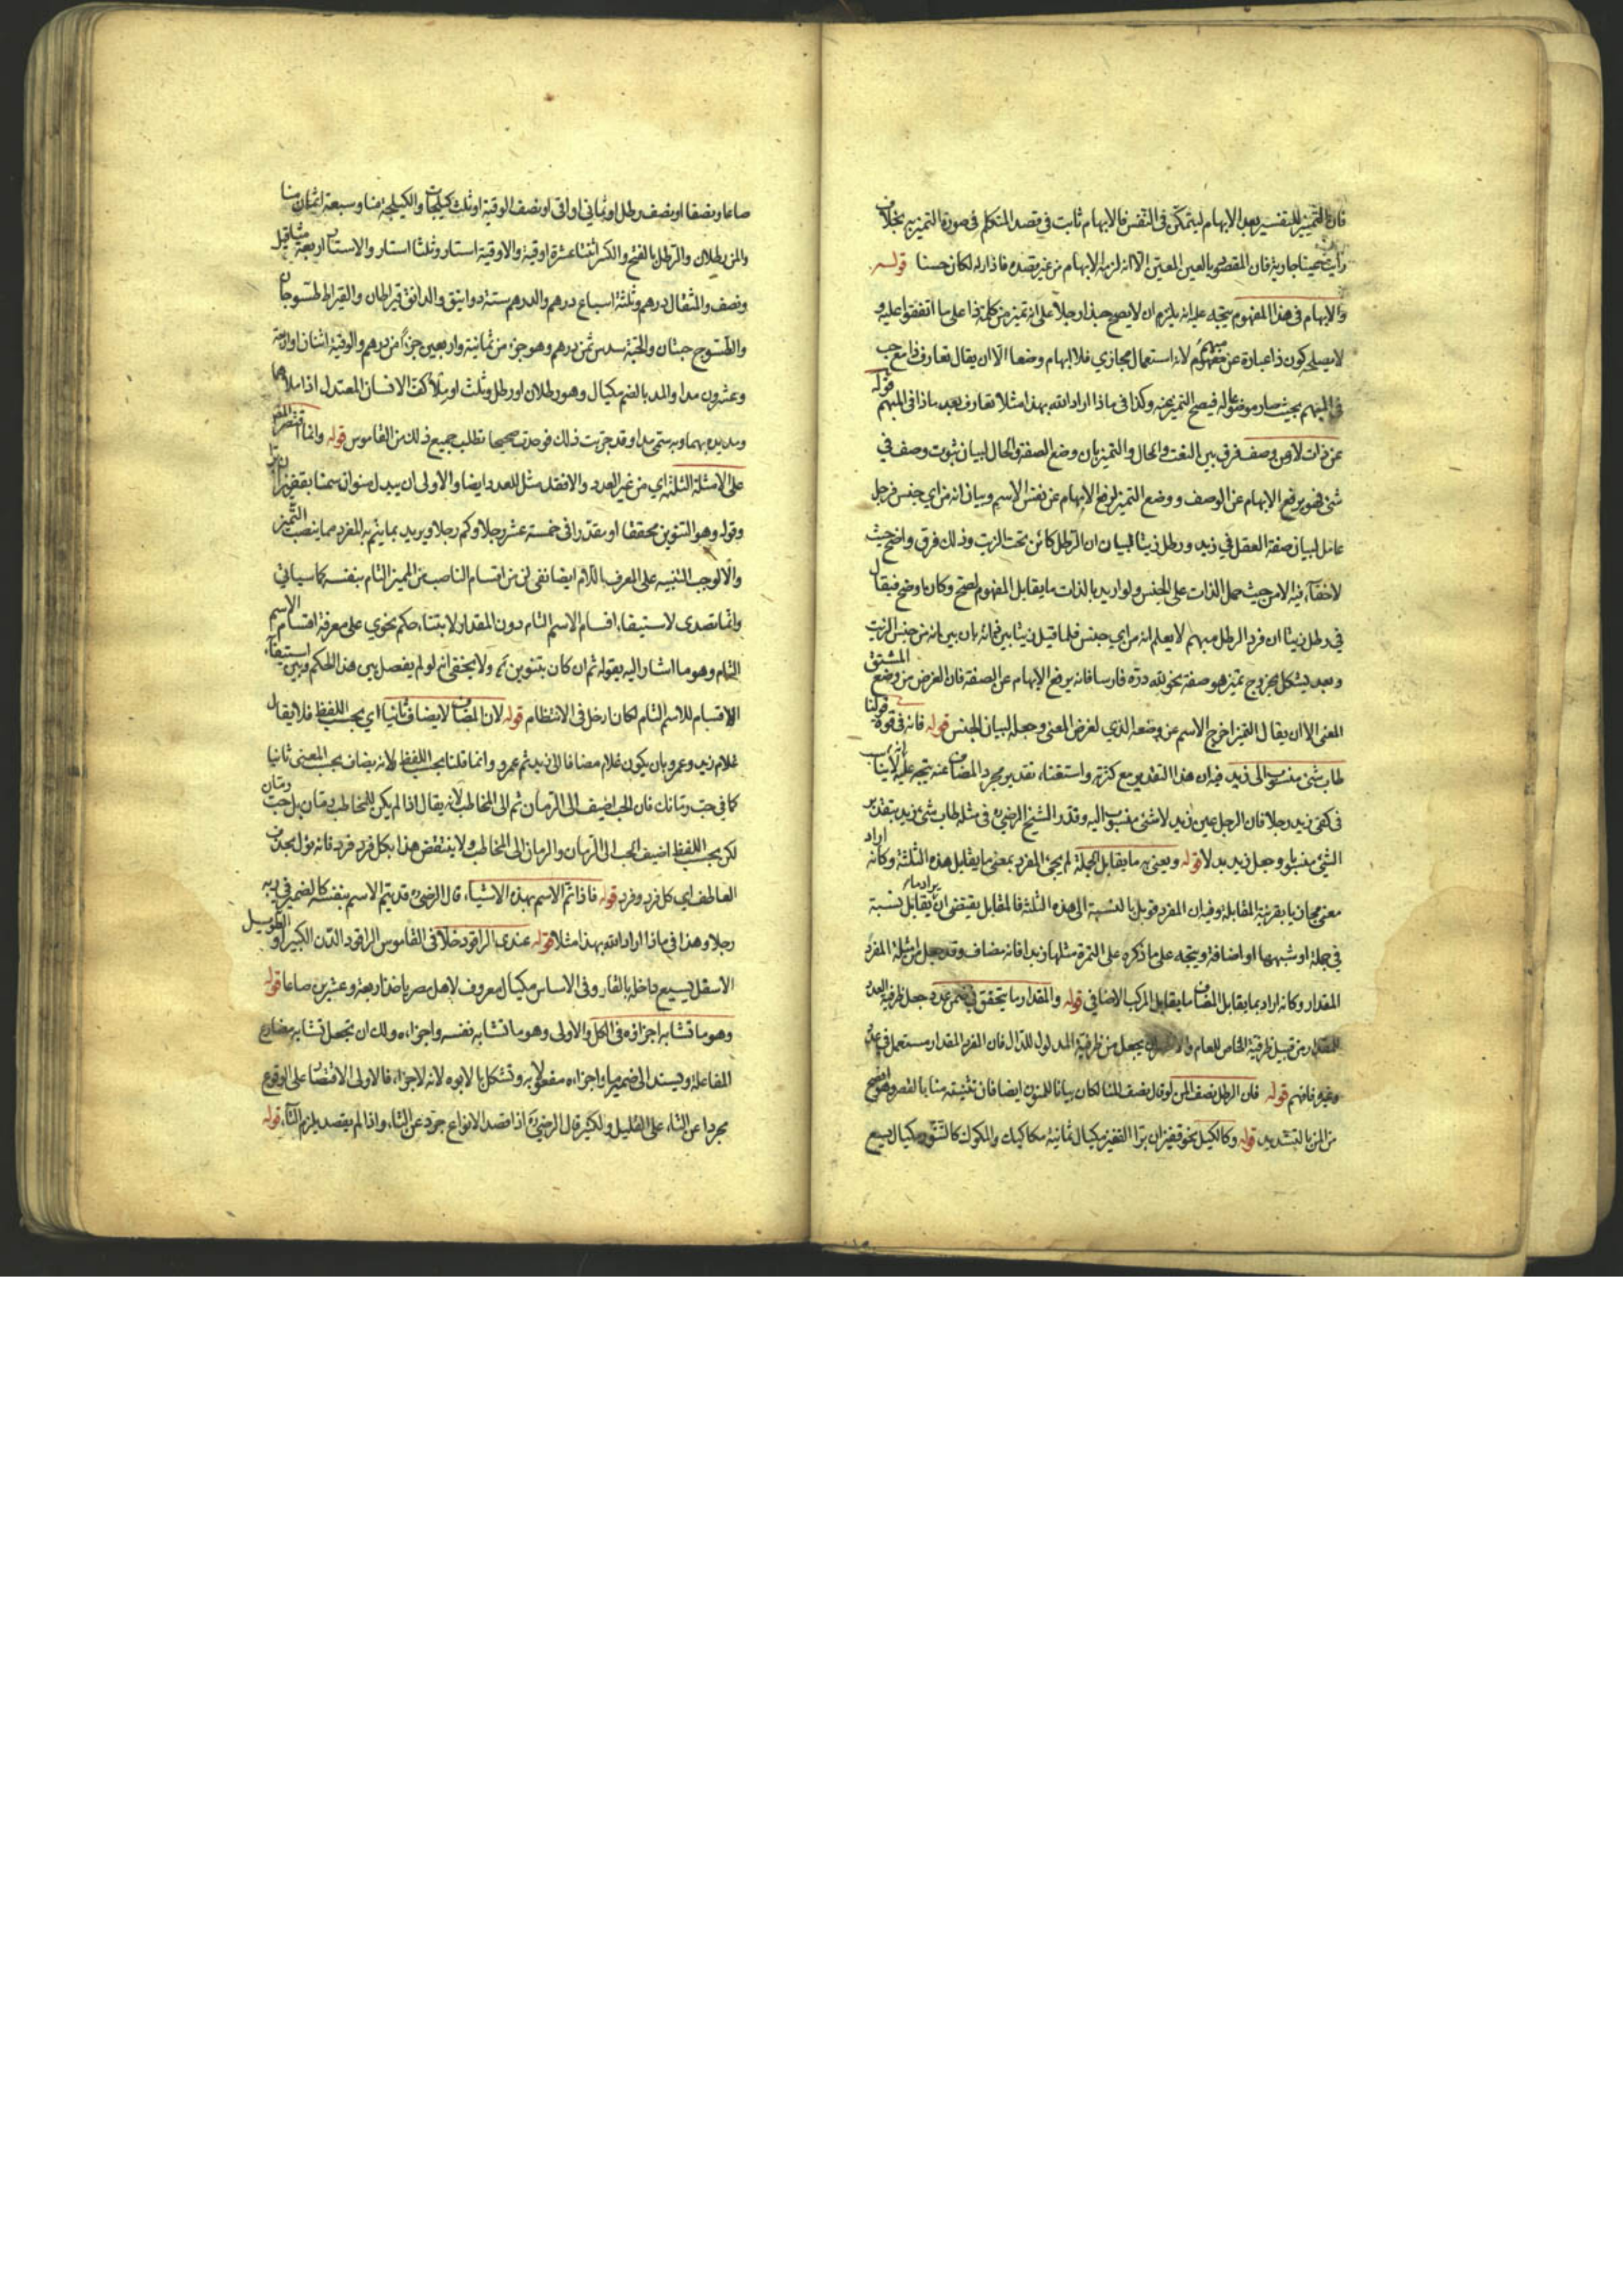 فان التمييز للتفسير بعد الابهام ليتمكن في النفس فالابهام ثابت في قصد المتكلم في صورة التميز به بخلاف
رأيت عينا جارية فان المقصود بالعين المعين الا انه لزمه الابهام من غير قصده فاذا رله لكان حسنا قوله
والابهام في هذا المفهوم يتجه عليه انه يلزم ان لا يصح حبذا رجلا على انه تميز من كلمة ذا على ما اتفقوا عليه و
لا يصلح كون ذا عبارة عن مفهوم مبهم لانه استعمال مجازي فلا ابهام وضعا الا ان يقال تعارف ذا مع حب
في المبهم بحيث صار موضوعا له فيصح التميز عنه وكذا في ماذا اراد الله بهذا مثلا تعارف بعد ماذا في المبهم قوله
عن ذات لا عن وصف فرق بين النعت والحال والتميز بان وضع الصفة والحال لبيان ثبوت وصف في
شئ فهو يرفع الابهام عن الوصف ووضع التميز لرفع الابهام عن نفس الاسم وبيان انه من اي جنس فرجل
عاقل لبيان صفة العقل في زيد ورطل زيتا لبيان ان الرطل كائن تحت الزيت وذلك فرق واضح حيث
لا خفاء فيه الا من حيث حمل الذات على الجنس ولو اريد بالذات ما يقابل المفهوم لصح وكان اوضح فيقال
في رطل زيتا ان فرد الرطل مبهم لا يعلم انه من اي جنس فلما قيل زيتا بين فانه بان بين انه من جنس الزيت
وبعد يشكل بخروج تميز هو صفة نحو لله دره فارسا فانه يرفع الابهام عن الصفة فان الغرض من وضع المشتق
المعنى الا ان يقال التميز اخرج الاسم عن وضعه الذي لغرض المعنى وجعله لبيان الجنس قوله فانه في قوة قولنا
طاب شئ منسوب الى زيد فيه ان هذا التقدير مع كثرته واستغناء تقدير مجرد المضاف عنه يتجه عليه انه لا يتاتى
في كفى زيد رجلا فان الرجل عين زيد لا شئ منسوب اليه وقدر الشيخ الرضي في مثله طاب شئ زيد بتقدير
الشئ منسوبا وجعل زيد بدلا قوله ويعني به ما يقابل الجملة لم يجئ المفرد بمعنى ما يقابل هذه الثلثة وكانه اراد
معنى مجازيا بقرينة المقابلة وفيه ان المفرد قوبل بالنسبة الى هذه الثلثة فالمقابل يقتضي ان يراد به ما يقابل نسبة
في جملة او شبهها او اضافة ويتجه على ما ذكره على التمرة مثلها زبدا فانه مضاف وقد جعل من امثلة المفرد
المقدار وكانه اراد بما يقابل المضاف ما يقابل المركب الاضافي قوله والمقدار ما يتحقق في ضمن عدد جعل ظرفية العدد
للمقدار من قبيل ظرفية الخاص للعام يجعل من ظرفية المدلول للدال فان المفرد المقدار مستعمل في عدد
وغيره فافهم قوله فان الرطل نصف المن لو قال نصف المنا لكان بيانا للمنوان ايضا فان تثنيته منا بالقصر وهو افصح
من المن بالتشديد قوله وكالكيل نحو قفيزان برا القفيز مكيال ثمانية مكاكيك والمكوك كالتنور مكيال يسع
صاعا ونصفا او نصف رطل او ثماني اواقي او نصف الوقية او ثلث كيلجات والكيلجة منا وسبعة اثمان منا
والمن رطلان والرطل بالفتح والكسر اثنتا عشرة اوقية والاوقية استار وثلثا استار والاستار اربعة مثاقيل
ونصف والمثقال درهم وثلثة اسباع درهم والدرهم ستة دوانيق والدانق قيراطان والقيراط طسوجان
والطسوج حبتان والحبة سدس ثمن درهم وهو جزء من ثمانية واربعين جزءا من درهم والوقية اثنان اواربعة
وعشرون مدا والمد بالضم مكيال وهو رطلان او رطل وثلث او ملأ كف الانسان المعتدل اذا ملأهما
ومد يده بهما وبه سمى مدا وقد جربت ذلك فوجدته صحيحا نطلب جميع ذلك من القاموس قوله وانما اقتصر المص
على الامثلة الثلثة اي من غير العدد والا فقد مثل للعدد ايضا والاولى ان يبدل منوان سمنا بقفيزان برا
وقوله وهو التنوين محققا او مقدرا في خمسة عشر رجلا وكم رجلا ويريد بما يتم به المفرد مما ينصب التميز
والا لوجب التنبيه على المعرف باللام ايضا نفى لن من اقسام الناصب عن المميز التام بنفسه كما سيأتي
وانما تصدى لاستيفاء اقسام الاسم التام دون المقدار لابتناء حكم نحوي على معرفة اقسام الاسم
التام وهو ما اشار اليه بقوله ثم ان كان بتنوين ولا يخفى انه لو لم يفصل بين هذا الحكم وبين استيفاء
الاقسام للاسم التام لكان ادخل في الانتظام قوله لان المضاف لا يضاف ثانيا اي بحسب اللفظ فلا يقال
غلام زيد وعمرو بان يكون غلام مضافا الى زيد ثم عمرو وانما قلنا بحسب اللفظ لانه يضاف بحسب المعنى ثانيا
كما في حب رمانك فان الحب اضيف الى الرمان ثم الى المخاطب لانه يقال اذا لم يكن للمخاطب رمان بل حب رمان
لكن بحسب اللفظ اضيف الحب الى الرمان والرمان الى المخاطب ولا ينتقض هذا بكل فرد فرد فانه مؤل بحذف
العاطف اي كل فرد وفرد قوله فاذا تم الاسم بهذه الاشياء قال الرضي قد يتم الاسم بنفسه كالضمير في ربه
رجلا وهذا في ماذا اراد الله بهذا مثلا قوله عندي الراقود خلا في القاموس الراقود الدن الكبير او الطويل
الاسفل يسيع داخله بالقار وفي الاساس مكيال معروف لاهل مصر ياخذ اربعة وعشرين صاعا قوله
وهو ما تشابه اجزاؤه في الكل والاولى وهو ما تشابه نفسه واجزاءه ولك ان تجعل تشابه مضارع
المفاعلة ويسند الى ضمير ما واجزاءه مفعولا به وتشكل بالابوه لانه لا جزء له فالاولى الاقتصار على الوقوع
مجردا عن التاء على القليل والكثير قال الرضي اذا قصد الانواع جرد عن التاء واذا لم يقصد يلزم التاء قوله